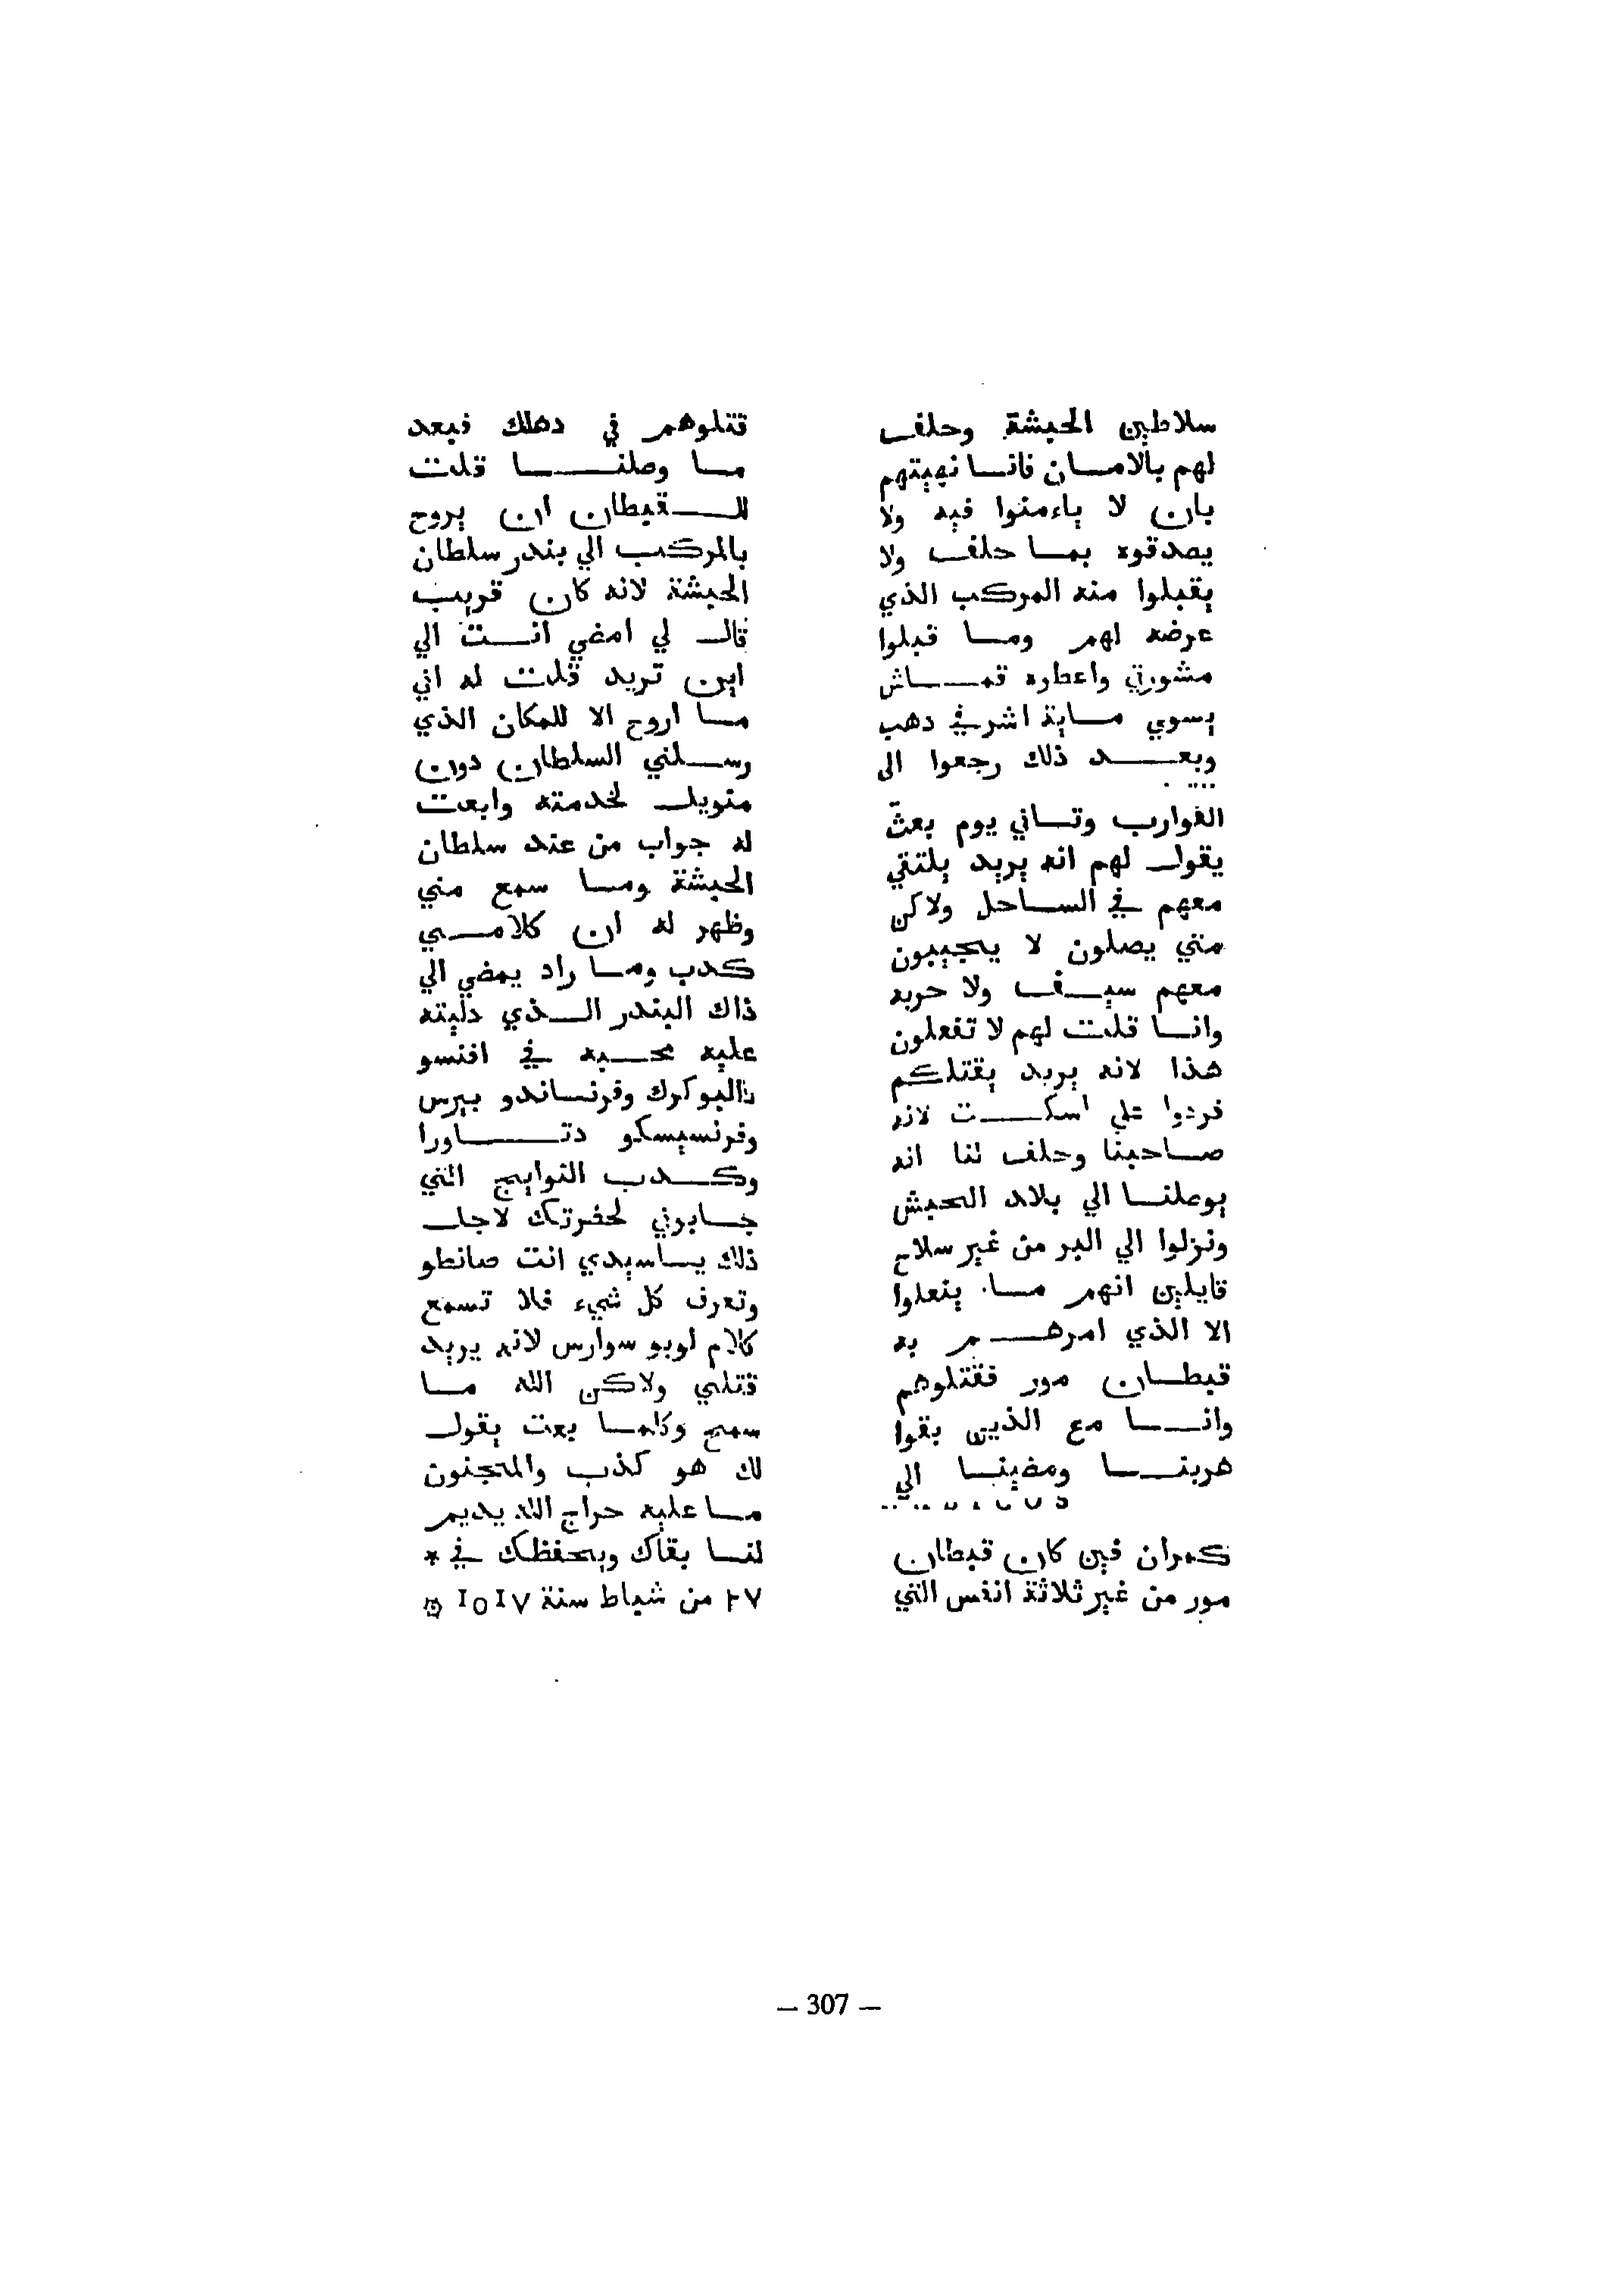 سلاطين الحبشة وحلف
لهم بالامان فانا نهيتهم
بان لا ياءمنوا فيه ولا
يصدقوه بما حلف ولا
يقبلوا منه المركب الذي
عرضه لهم وما قبلوا
مشورتي واعطاره قماش
يسوي ماية اشرفي دهب
وبعد ذلك رجعوا الى
القوارب وتاني يوم بعث
يقول لهم انه يريد يلتقي
معهم في الساحل ولاكن
متي يصلون لا يجيبون
معهم سيف ولا حربه
وانا قلت لهم لا تفعلون
هذا لانه يريد يقتلكم
فردوا علي اسكت لانه
صاحبنا وحلف لنا انه
يوصلنا الي بلاد الحبش
ونزلوا الي البر من غير سلاح
قايلين انهم ما يفعلوا
الا الذي امرهم به
قبطان مور فقتلوهم
وانا مع الذين بقوا
هربنا ومضينا الي
كمران فين كان قبطان
مور من غير ثلاثة انفس التي
قتلوهم في دهلك فبعد
ما وصلنا قلت
للقبطان ان يروح
بالمركب الي بندر سلطان
الحبشة لانه كان قريب
قال لي امضي انت الي
اين تريد قلت له اني
ما اروح الا للمكان الذي
رسلني السلطان دون
منويل لخدمته وابعت
له جواب من عند سلطان
الحبشة وما سمع مني
وظهر له ان كلامي
كدب وما راد يمضي الي
ذاك البندر الذي دليته
عليه محبه في افنسو
دالبوكرك وفرنساندو بيرس
وفرنسيسكو دتاورا
وكدب التوابيج التي
جابوني لحضرتك لاجل
ذلك ياسيدي انت صانطو
وتعرف كل شيء فلا تسمع
كلام لوبو سوارس لانه يريد
قتلي ولاكن الله ما
سمح وكلما بعت يقول
لك هو كذب والمجنون
ما عليه حراج الله يديم
لنا بقاك ويحفظك في *
٢٧ من شباط سنة ١٥١٧
— 307 —